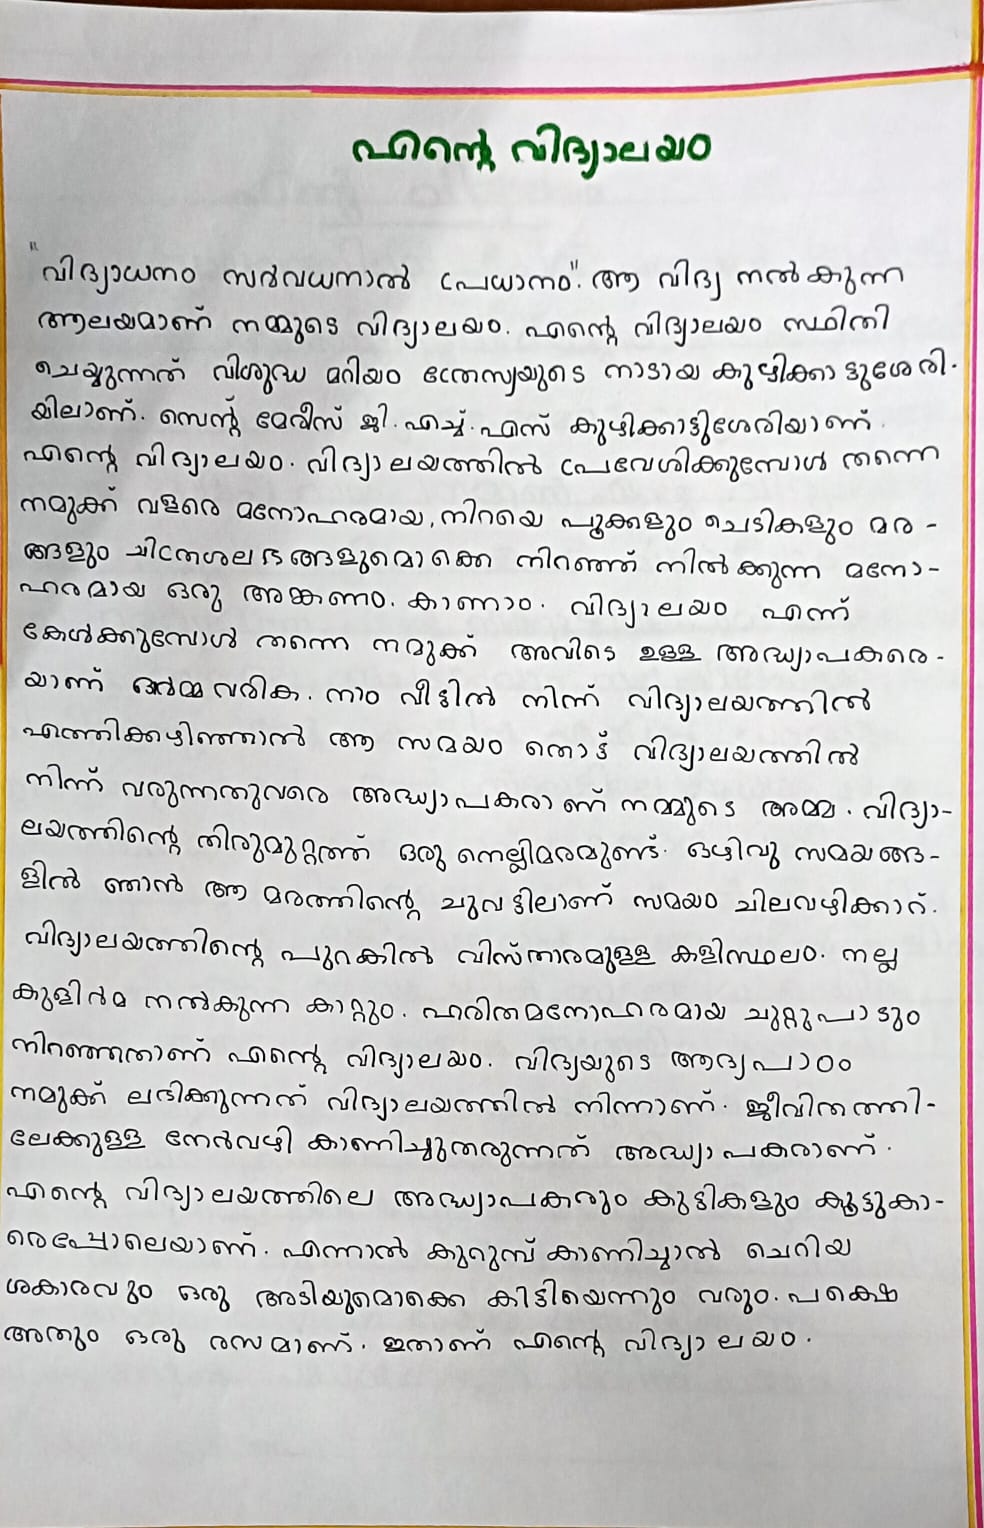 എന്റെ വിദ്യാലയം
"വിദ്യാധനം സർവധനാൽ പ്രധാനം". ആ വിദ്യ നൽകുന്ന
ആലയമാണ് നമ്മുടെ വിദ്യാലയം. എന്റെ വിദ്യാലയം സ്ഥിതി
ചെയ്യുന്നത് വിശുദ്ധ മറിയം ത്രേസ്യയുടെ നാടായ കുഴിക്കാട്ടുശേരി-
യിലാണ്. സെന്റ് മേരീസ് ജി. എച്ച്. എസ് കുഴിക്കാട്ടിശേരിയാണ്.
എന്റെ വിദ്യാലയം. വിദ്യാലയത്തിൽ പ്രവേശിക്കുമ്പോൾ തന്നെ
നമുക്ക് വളരെ മനോഹരമായ, നിറയെ പൂക്കളും ചെടികളും മര-
ങ്ങളും ചിത്രശലഭങ്ങളുമൊക്കെ നിറഞ്ഞ് നിൽക്കുന്ന മനോ-
ഹരമായ ഒരു അങ്കണം. കാണാം. വിദ്യാലയം എന്ന്
കേൾക്കുമ്പോൾ തന്നെ നമുക്ക് അവിടെ ഉള്ള അദ്ധ്യാപകരെ-
യാണ് ഓർമ്മ വരിക. നാം വീട്ടിൽ നിന്ന് വിദ്യാലയത്തിൽ
എത്തിക്കഴിഞ്ഞാൽ ആ സമയം തൊട്ട് വിദ്യാലയത്തിൽ
നിന്ന് വരുന്നതുവരെ അദ്ധ്യാപകരാണ് നമ്മുടെ അമ്മ. വിദ്യാ-
ലയത്തിന്റെ തിരുമുറ്റത്ത് ഒരു നെല്ലിമരമുണ്ട്. ഒഴിവു സമയങ്ങ-
ളിൽ ഞാൻ ആ മരത്തിന്റെ ചുവട്ടിലാണ് സമയം ചിലവഴിക്കാറ്.
വിദ്യാലയത്തിന്റെ പുറകിൽ വിസ്താരമുള്ള കളിസ്ഥലം. നല്ല
കുളിർമ നൽകുന്ന കാറ്റും. ഹരിതമനോഹരമായ ചുറ്റുപാടും
നിറഞ്ഞതാണ് എന്റെ വിദ്യാലയം. വിദ്യയുടെ ആദ്യപാഠം
നമുക്ക് ലഭിക്കുന്നത് വിദ്യാലയത്തിൽ നിന്നാണ്. ജീവിതത്തി-
ലേക്കുള്ള നേർവഴി കാണിച്ചുതരുന്നത് അദ്ധ്യാപകരാണ്.
എന്റെ വിദ്യാലയത്തിലെ അദ്ധ്യാപകരും കുട്ടികളും കൂട്ടുകാ-
രെപ്പോലെയാണ്. എന്നാൽ കുറുമ്പ് കാണിച്ചാൽ ചെറിയ
ശകാരവും ഒരു അടിയുമൊക്കെ കിട്ടിയെന്നും വരും. പക്ഷെ
അതും ഒരു രസമാണ്. ഇതാണ് എന്റെ വിദ്യാലയം.